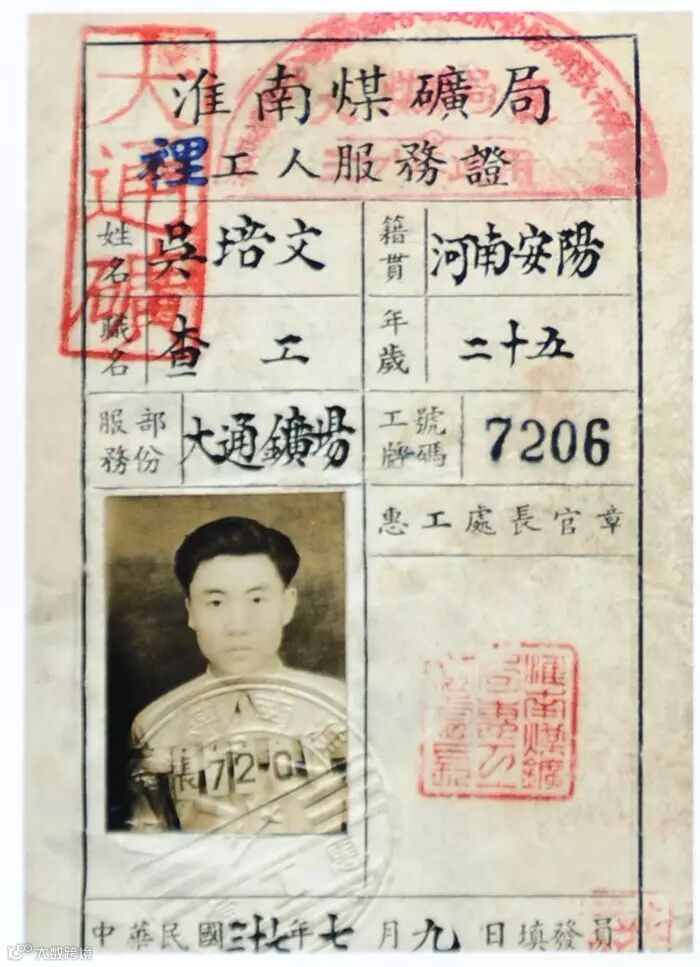 淮南煤礦局
裡工人服務證
大通礦
姓名 吳培文 籍貫 河南安陽
職名 查工 年歲 二十五
服務部份 大通鑛場 工牌號碼 7206
惠工處長官章
720
中華民國三十七年七月九日填發員
大数跨境